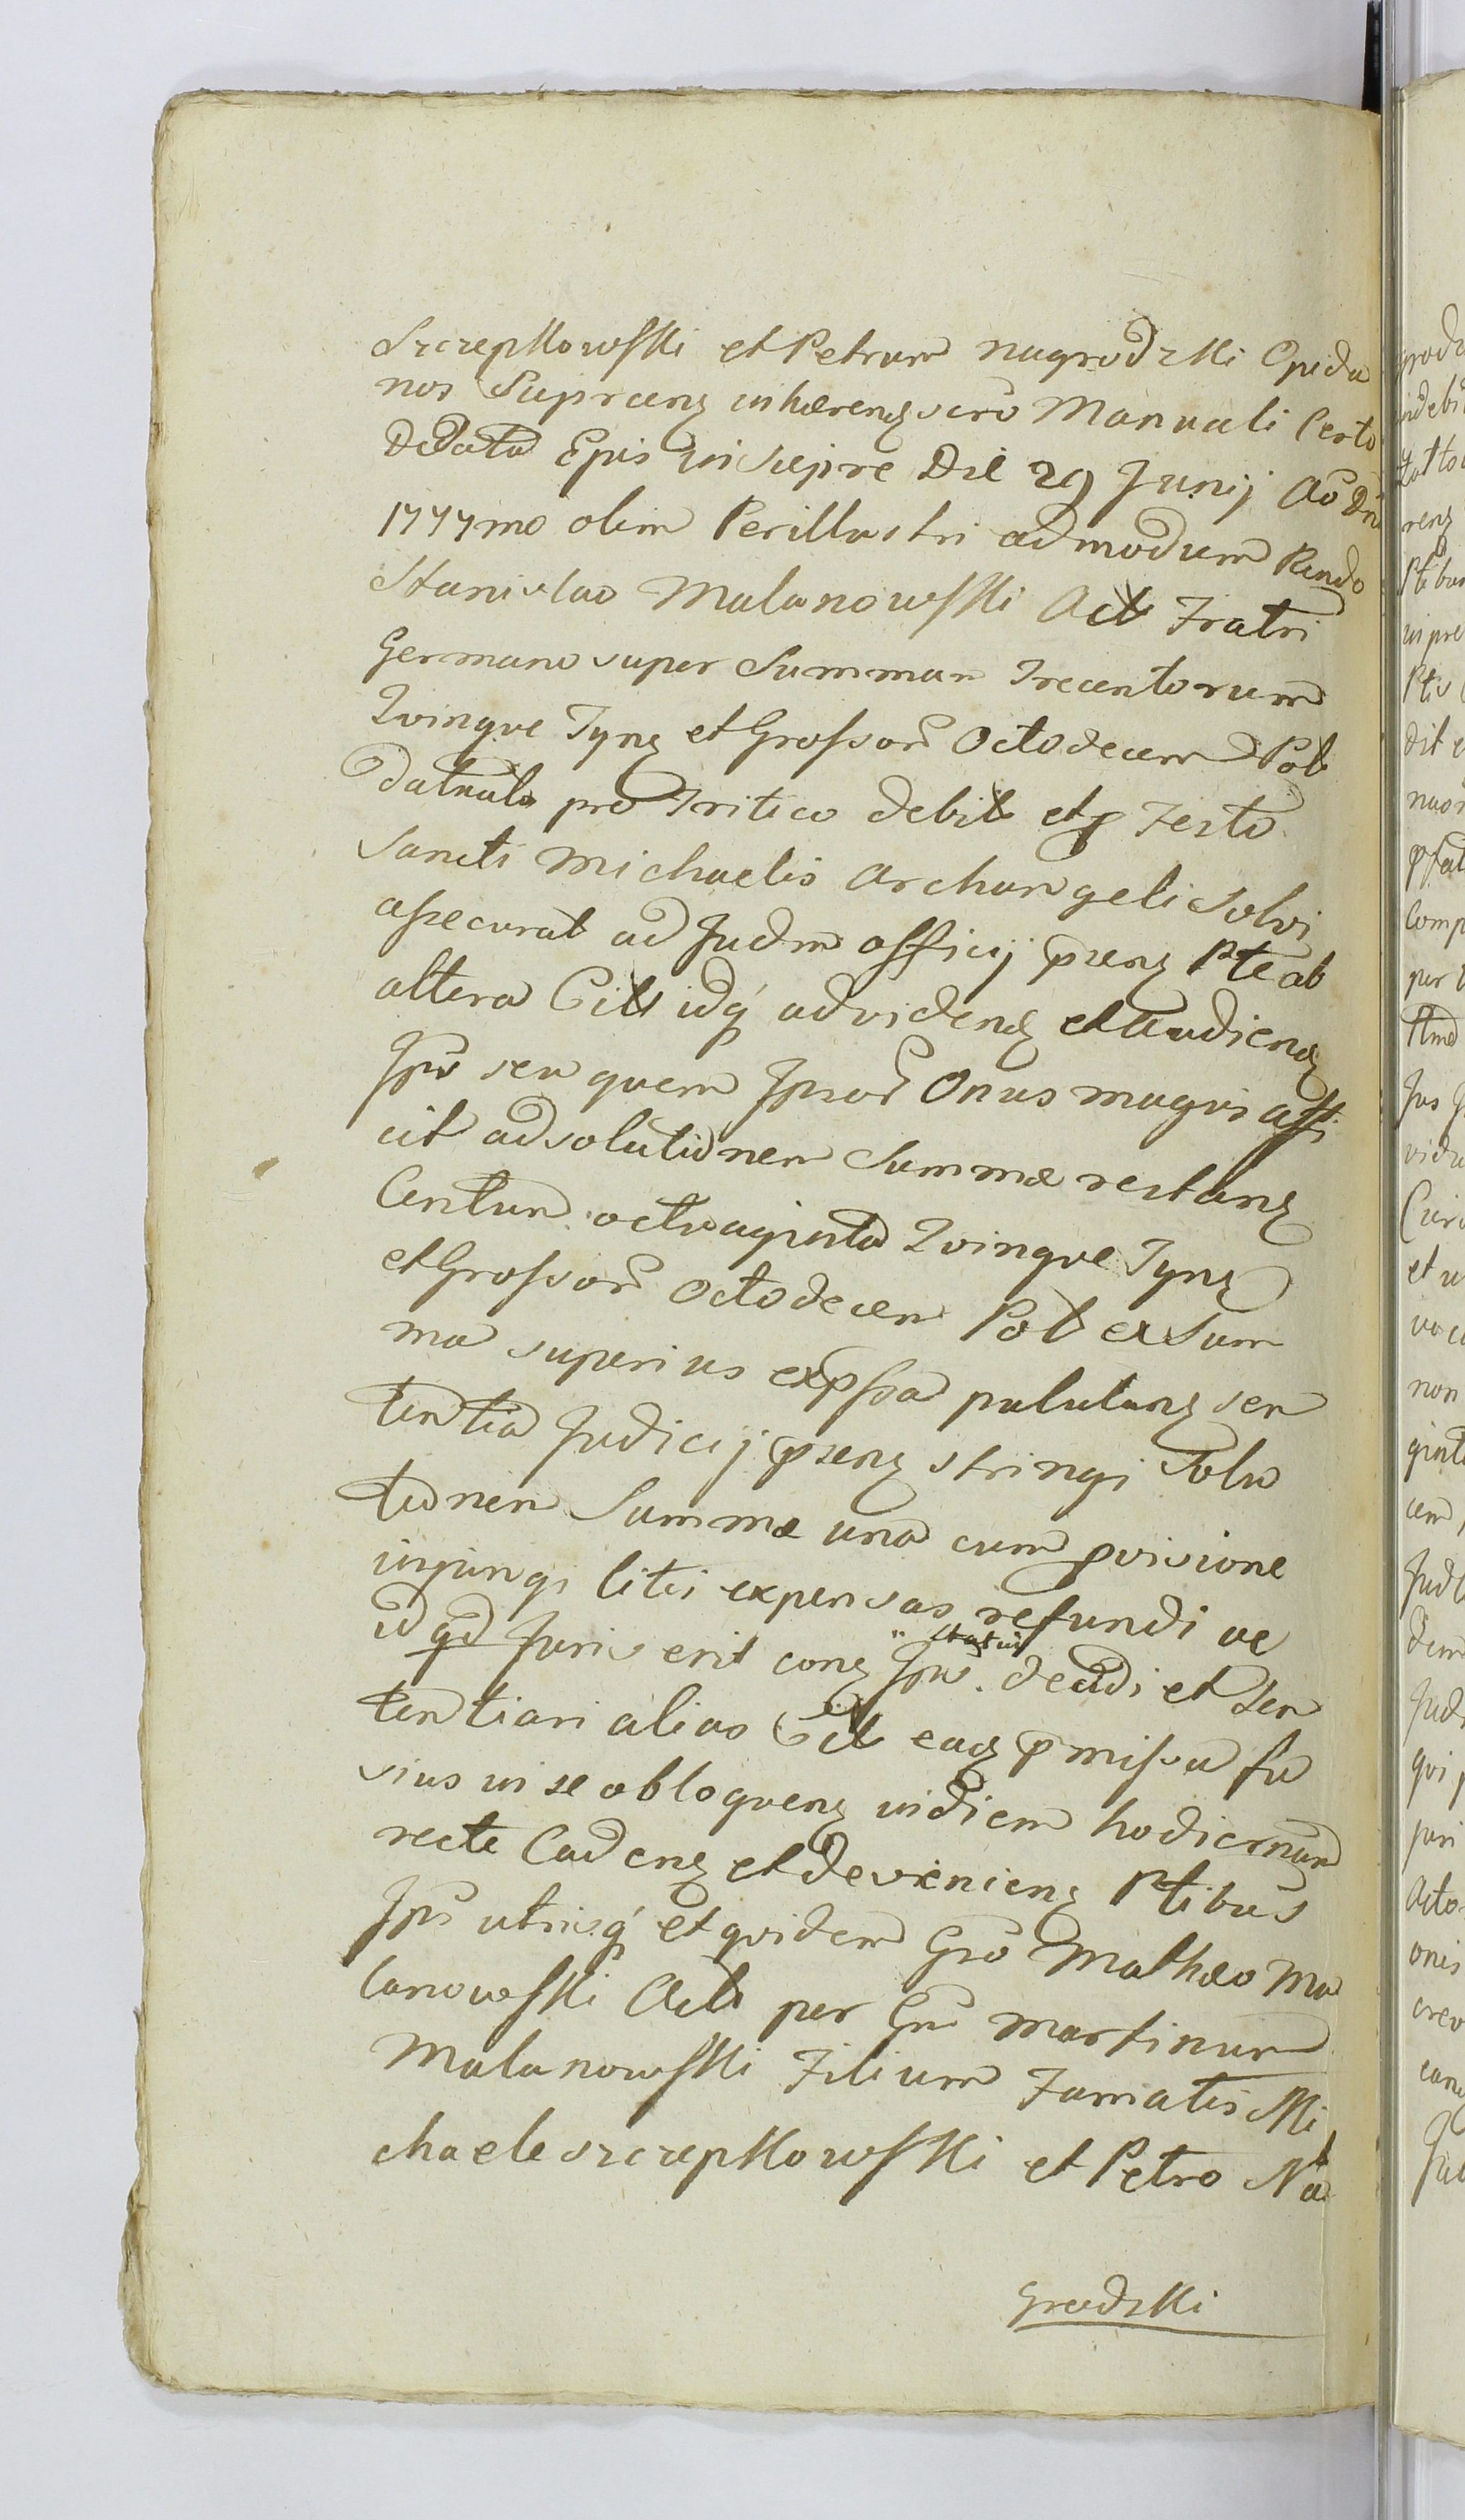 Szczepkowski et Petrum nagrodzki Opida
nos Supraenz inhaerenz scro Manuali Certo
De Data Epis in Siepre Die 29 Junij Ao Dni
1777mo olim Perillustri admodum Rndo
Stanislao Malanowski Act Fratri
Germano super Summam Trecentorum
Qvinqve Tynz et Grossor Octodecem Pol
Datnalo pro Tritico debit et p Festo
Sancti Michaelis Archangeli Solvi
assecurat ad Judm officij praenz Pte ab
altera Citt idq advidenz et audienz
Ipo seu quem Ipsor Onus magis affi
cit ad solutionem Summae restanz
Centum octuaginta Qvinqve Tynz
et Grossor Octodecem Pol ex Sum
ma superius expssa pulutanz sen
tentia Judicij praenz stringi Solu
tionem Summae una cum pvisione
injungi litis expensas refundi ac
id qd Juris erit conz Ipos statui decidi et Sen
tentiari alias Citt eaq p missa fu
sius in se obloqvenz in diem hodiernum
recte Cadenz et devenienz Ptibus
Ipis utrisq et qvidem Gno Mathaeo Ma
lanowski Act per Gnu Martinum
Malanowski Filium Famatis Mi
chaele szczepkowski et Petro Na
Grodzki